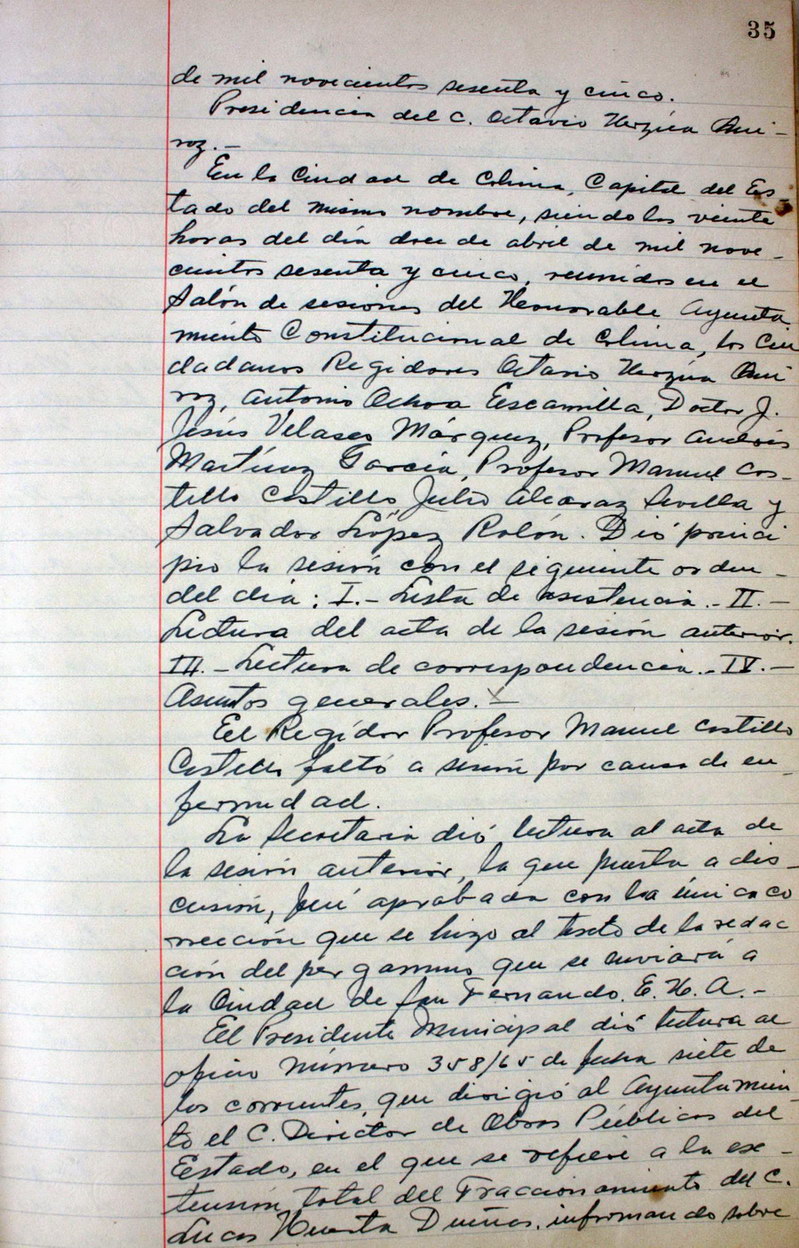 35
de mil novecientos sesenta y cinco.
Presidencia del C. Octavio Urzúa Qui-
roz.-
En la Ciudad de Colima, Capital del Es
tado del mismo nombre, siendo las veinte
horas del día doce de abril de mil nove-
cientos sesenta y cinco, reunidos en el
Salón de sesiones del Honorable Ayunta
miento Constitucional de Colima, los Ciu
dadanos Regidores Octavio Urzúa Qui
roz, Antonio Ochoa Escamilla, Doctor J.
Jesús Velasco Márquez, Profesor Andrés
Martínez García, Profesor Manuel Cas-
tillo Castillo, Julio Alcaraz Sevilla y
Salvador López Rolón. Dió princi
pio la sesión con el siguiente orden-
del día: I.- Lista de asistencia.- II.-
Lectura del acta de la sesión anterior.
III.- Lectura de correspondencia.- IV.-
Asuntos generales.-
El Regidor Profesor Manuel Castillo
Castillo faltó a sesión por causa de en-
fermedad.
La Secretaria dió lectura al acta de
la sesión anterior, la que puesta a dis-
cusión, fué aprobada con la única co
rrección que se hizo al texto de la redac
ción del pergamino que se enviará a
la Ciudad de San Fernando, E.U.A.-
El Presidente Municipal dió lectura al
oficio número 358/65 de fecha siete de
los corrientes, que dirigió al Ayuntamien-
to el C. Director de Obras Públicas del
Estado, en el que se refiere a la ex-
tensión total del Fraccionamiento del C.
Lucas Huerta Dueñas, informando sobre